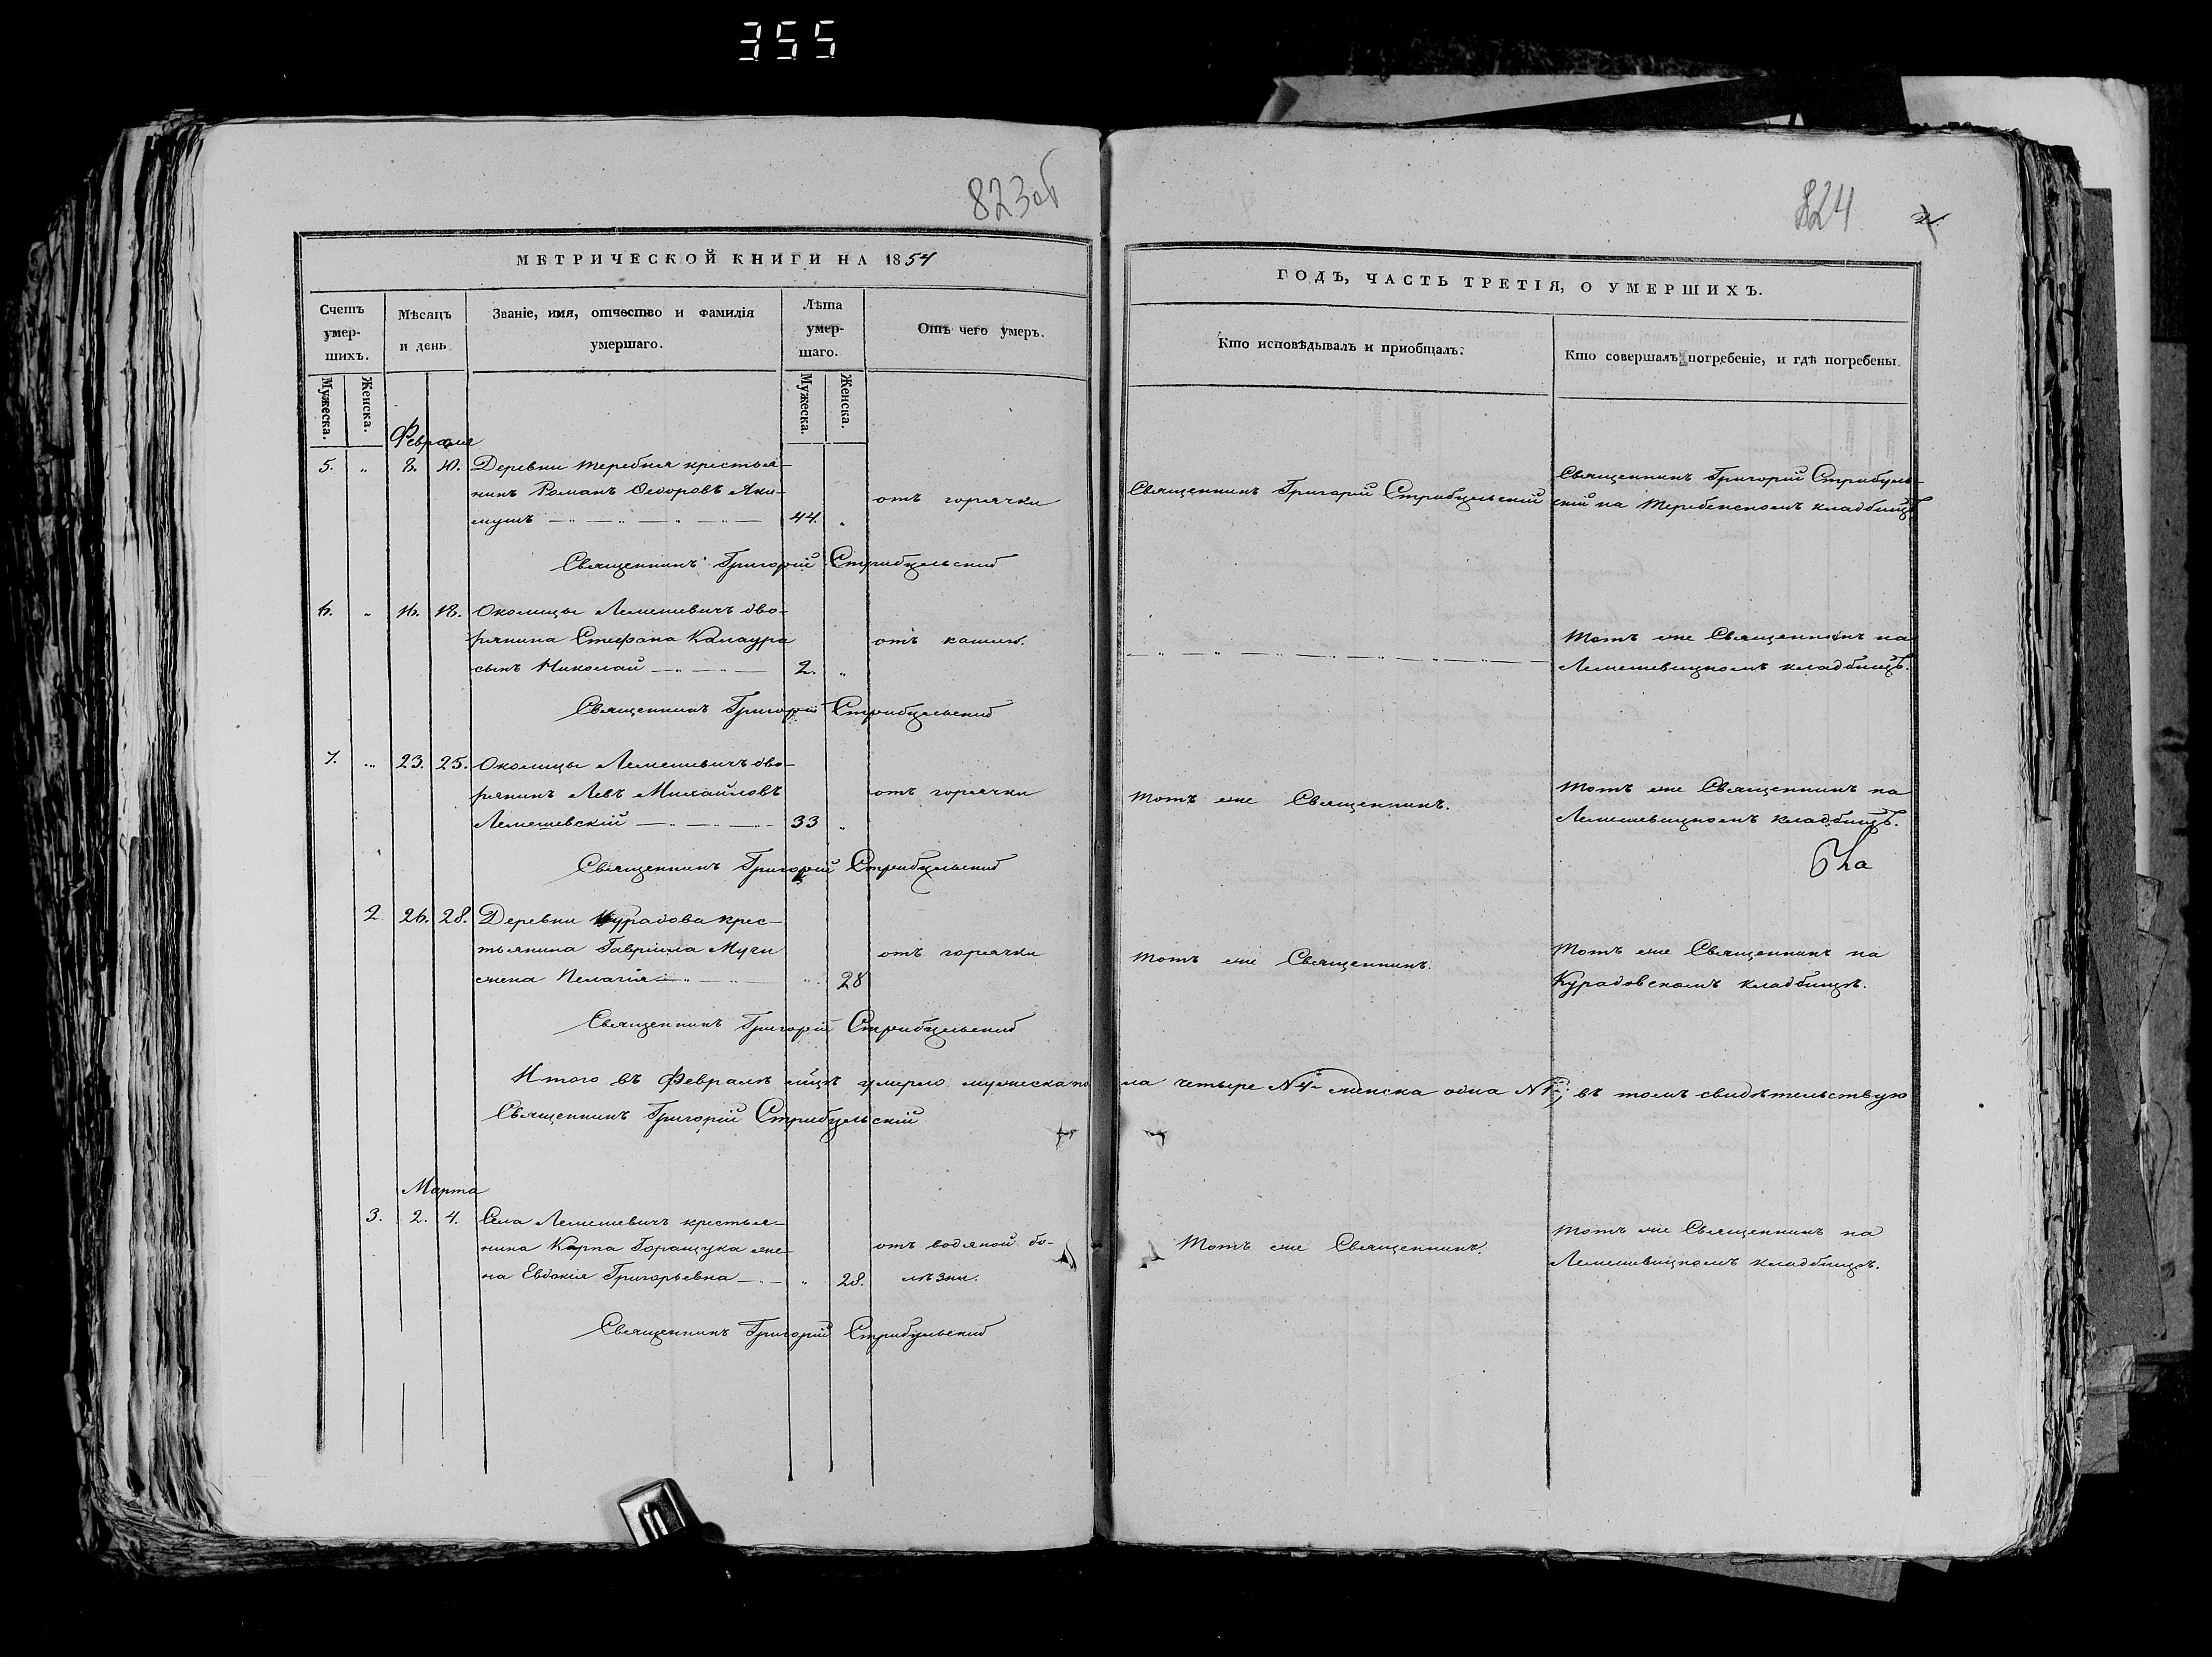 355
823об
824
2.
МЕТРИЧЕСКОЙ КНИГИ НА 1854
ГОДЪ, ЧАСТЬ ТРЕТІЯ, О УМЕРШИХЪ.
Счетъ умер-шихъ.
Мѣсяцъ и день
Званіе, имя, отчество и фамилія умершаго.
Лѣта умер-шаго.
Отъ чего умеръ.
Кто исповѣдывалъ и приобщалъ.
Кто совершалъ погребеніе, и гдѣ погребены.
Мужеска.
Женска.
Мужеска.
Женска.
Февраля
5. „ 8. 10. Деревни Теребня крестья-
нинъ Романъ Ѳеодоровъ Яки-
мушъ 44. „
отъ горячки
Священникъ Григорій Стрибульскій
Священникъ Григорій Стрибуль-
скій на Теребенскомъ кладбищѣ
Священникъ Григорій Стрибульскій
6. „ 16. 18. Околицы Лемешевичъ дво-
рянина Стефана Калаура
сынъ Николай 2. „
отъ кашлю.
Тотъ же Священникъ на
Лемешевицкомъ кладбищѣ.
Священникъ Григорій Стрибульскій
7. „ 23. 25. Околицы Лемешевичъ дво-
рянинъ Левъ Михайловъ
Лемешевскій 33 „
отъ горячки
Тотъ же Священникъ.
Тотъ же Священникъ на
Лемешевицкомъ кладбищѣ.
Священникъ Григорій Стрибульскій
2 26. 28. Деревни Курадова крес-
тьянина Гавріила Мучи
жена Пелагія „ 28
отъ горячки
Тотъ же Священникъ.
Тотъ же Священникъ на
Курадовскомъ кладбищѣ.
Священникъ Григорій Стрибульскій
Итого въ Февралѣ мцѣ умерло мужеска по-ла четыре N 4. женска одна N 1; въ томъ свидѣтельствую
Священникъ Григорій Стрибульскій
Марта
3. 2. 4. Села Лемешевичъ крестья-
нина Карпа Горащука же-
на Евдокія Григорьевна „ 28.
отъ водяной бо-
лѣзни.
Тотъ же Священникъ.
Тотъ же Священникъ на
Лемешевицкомъ кладбищѣ.
Священникъ Григорій Стрибульскій